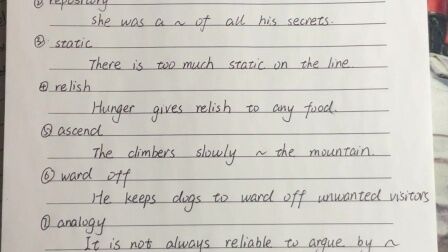 ② repository
She was a ~ of all his secrets.
③ static
There is too much static on the line.
④ relish
Hunger gives relish to any food.
⑤ ascend
The climbers slowly ~ the mountain.
⑥ ward off
He keeps dogs to ward off unwanted visitors
⑦ analogy
It is not always reliable to argue by ~